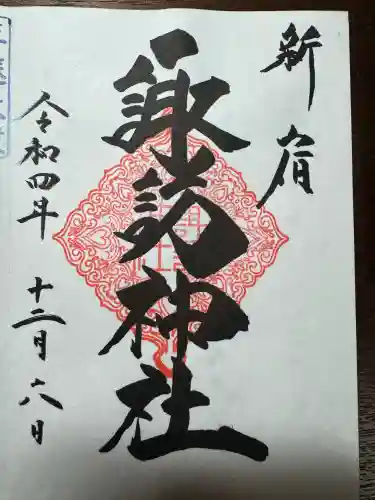 新宿
諏訪神社
令和四年 十二月六日